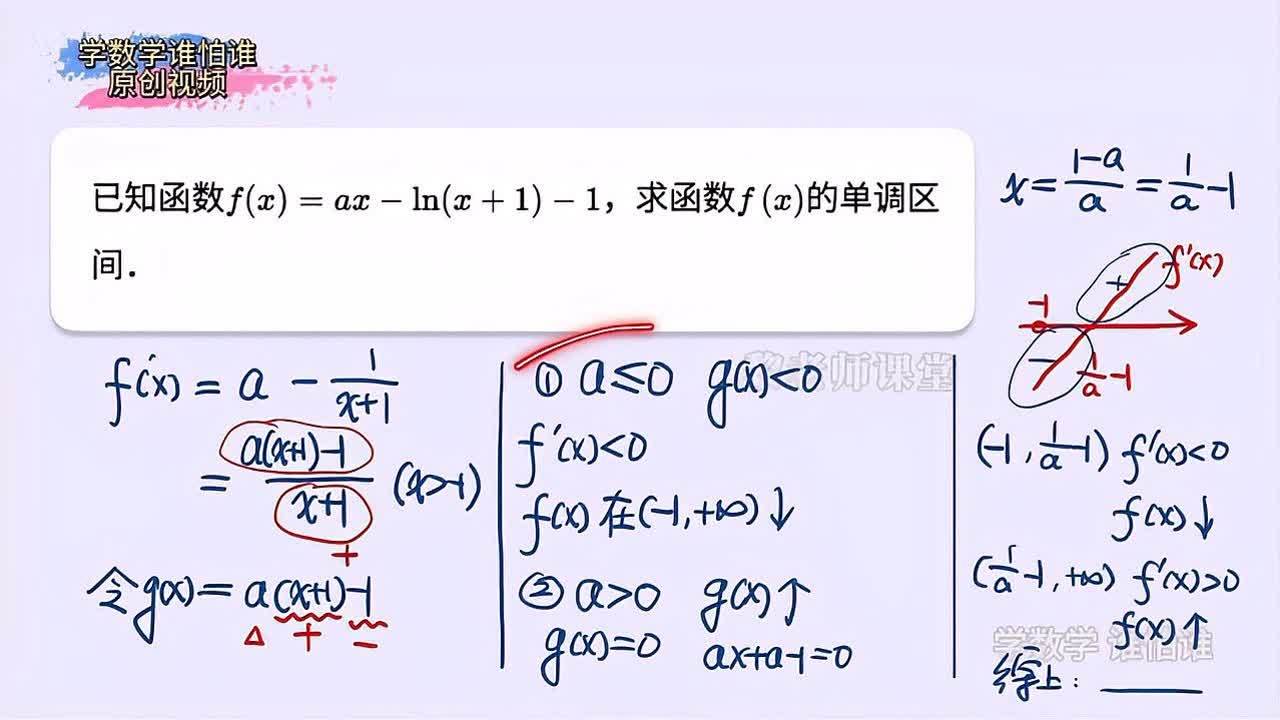 学数学谁怕谁
原创视频
已知函数f(x) = ax − ln(x + 1) − 1，求函数f (x)的单调区
间．
f'(x) = a − 1/(x+1)
= (a(x+1)−1)/(x+1) (x>-1)
+
令g(x)=a(x+1)-1
△ + −
① a≤0 g(x)<0
黎老师课堂
f'(x)<0
f(x)在(-1,+∞)↓
② a>0 g(x)↑
g(x)=0 ax+a-1=0
x=(1-a)/a=1/a-1
f'(x)
+
-1
−
1/a-1
(-1, 1/a-1) f'(x)<0
f(x)↓
(1/a-1, +∞) f'(x)>0
f(x)↑
学数学 谁怕谁
综上：